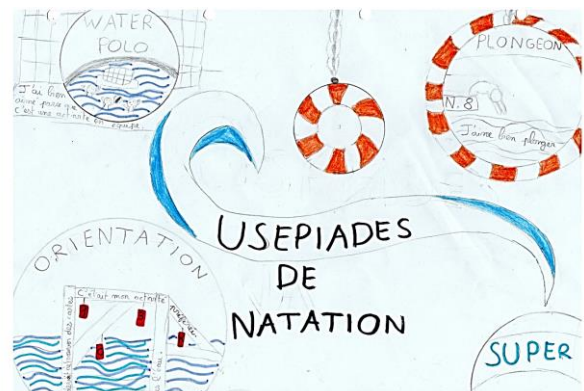 WATER
POLO
J'ai bien
aimé parce que
c'est une activité en
équipe.
PLONGEON
N. 8
J'aime bien plonger
USEPIADES
DE
NATATION
ORIENTATION
C'était mon activité
préférée
SUPER